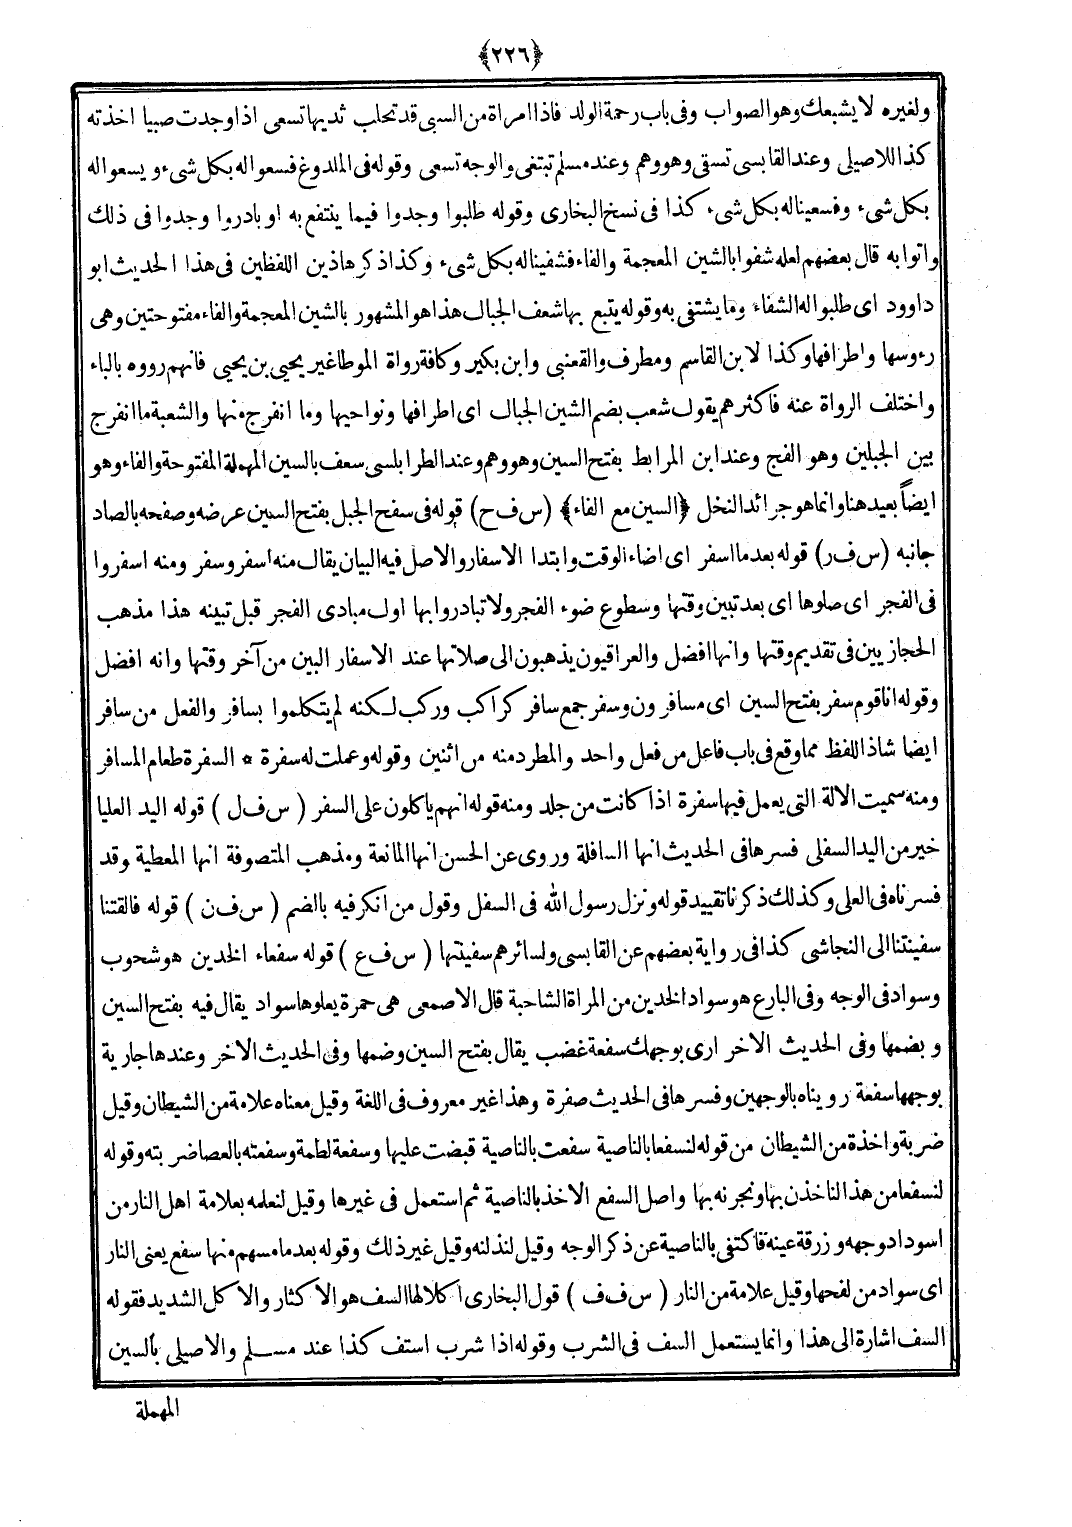 ﴿٢٢٦﴾
ولغيره لا يشبعك وهو الصواب وفى باب رحمة الولد فاذا امراة من السبى قد تحلب ثديها تسعى اذا وجدت صبيا اخذته
كذا للاصيلى وعند القابسى تسقى وهو وهم وعند مسلم تبتغى والوجه تسعى وقوله فى الملدوغ فسعوا له بكل شىء ويسعوا له
بكل شىء وفسعينا له بكل شىء كذا فى نسخ البخارى وقوله طلبوا وجدوا فيما ينتفع به او بادروا وجدوا فى ذلك
واتوا به قال بعضهم لعله شفوا بالشين المعجمة والفاء فشفينا له بكل شىء وكذا ذكر هاذين اللفظين فى هذا الحديث ابو
داوود اى طلبوا له الشفاء وما يشتفى به وقوله يتبع بها شعف الجبال هذا هو المشهور بالشين المعجمة والفاء مفتوحتين وهى
رءوسها واطرافها وكذا لابن القاسم ومطرف والقعنبى وابن بكير وكافة رواة الموطا غير يحيى بن يحيى فانهم رووه بالباء
واختلف الرواة عنه فاكثرهم يقول شعب بضم الشين الجبال اى اطرافها ونواحيها وما انفرج منها والشعبة ما انفرج
بين الجبلين وهو الفج وعند ابن المرابط بفتح السين وهو وهم وعند الطرابلسى سعف بالسين المهملة المفتوحة والفاء وهو
ايضاً بعيد هنا وانما هو جرائد النخل ﴿السين مع الفاء﴾ (س ف ح) قوله فى سفح الجبل بفتح السين عرضه وصفحه بالصاد
جانبه (س ف ر) قوله بعد ما اسفر اى اضاء الوقت وابتدا الاسفار والاصل فيه البيان يقال منه اسفر وسفر ومنه اسفروا
فى الفجر اى صلوها اى بعد تبين وقتها وسطوع ضوء الفجر ولا تبادروا بها اول مبادى الفجر قبل تبينه هذا مذهب
الحجازيين فى تقديم وقتها وانها افضل والعراقيون يذهبون الى صلاتها عند الاسفار البين من آخر وقتها وانه افضل
وقوله انا قوم سفر بفتح السين اى مسافرون وسفر جمع سافر كراكب وركب لكنه لم يتكلموا بسافر والفعل من سافر
ايضا شاذ اللفظ مما وقع فى باب فاعل من فعل واحد والمطرد منه من اثنين وقوله وعملت له سفرة * السفرة طعام المسافر
ومنه سميت الالة التى يعمل فيها سفرة اذا كانت من جلد ومنه قوله انهم ياكلون على السفر (س ف ل) قوله اليد العليا
خير من اليد السفلى فسرها فى الحديث انها السافلة وروى عن الحسن انها المانعة ومذهب المتصوفة انها المعطية وقد
فسرناه فى العلى وكذلك ذكرنا تقييد قوله ونزل رسول الله فى السفل وقول من انكر فيه بالضم (س ف ن) قوله فالقتنا
سفينتنا الى النجاشى كذا فى رواية بعضهم عن القابسى ولسائرهم سفينتها (س ف ع) قوله سفعاء الخدين هو شحوب
وسواد فى الوجه وفى البارع هو سواد الخدين من المراة الشاحبة قال الاصمعى هى حمرة يعلوها سواد يقال فيه بفتح السين
وبضمها وفى الحديث الاخر ارى بوجهك سفعة غضب يقال بفتح السين وضمها وفى الحديث الاخر وعندها جارية
بوجهها سفعة رويناه بالوجهين وفسرها فى الحديث صفرة وهذا غير معروف فى اللغة وقيل معناه علامة من الشيطان وقيل
ضربة واخذة من الشيطان من قوله لنسفعا بالناصية سفعت بالناصية قبضت عليها وسفعة لطمة وسفعته بالعصا ضربته وقوله
لنسفعا من هذا لناخذن بها ونجرنه بها واصل السفع الاخذ بالناصية ثم استعمل فى غيرها وقيل لنعلمه بعلامة اهل النار من
اسوداد وجهه وزرقة عينه فاكتفى بالناصية عن ذكر الوجه وقيل لنذلنه وقيل غير ذلك وقوله بعد ما مسهم منها سفع يعنى النار
اى سواد من لفحها وقيل علامة من النار (س ف ف) قول البخارى اكلالها السف هو الاكثار والاكل الشديد فقوله
السف اشارة الى هذا وانما يستعمل السف فى الشرب وقوله اذا شرب استف كذا عند مسلم والاصيلى بالسين
المهملة